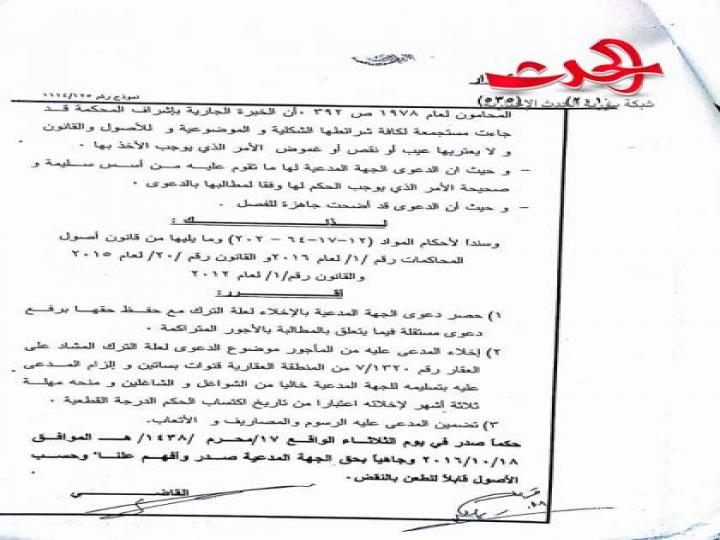 الحدث
شبكة
نموذج رقم
المحامون لعام ١٩٧٨ ص ٣٩٢ ٠أن الخبرة الجارية بإشراف المحكمة قد
جاءت مستجمعة لكافة شرائطها الشكلية و الموضوعية و للأصول والقانون
و لا يعتريها عيب أو نقص أو غموض الأمر الذي يوجب الأخذ بها ٠
– و حيث ان الدعوى الجهة المدعية لها ما تقوم عليه من أسس سليمة و
صحيحة الأمر الذي يوجب الحكم لها وفقا لمطالبها بالدعوى ٠
– و حيث أن الدعوى قد أضحت جاهزة للفصل ٠
لـذلـك :
وسندا لأحكام المواد (١٢-١٧-٦٤ - ٢٠٢) وما يليها من قانون أصول
المحاكمات رقم /١/ لعام ٢٠١٦و القانون رقم /٢٠/ لعام ٢٠١٥
والقانون رقم/١/ لعام ٢٠١٢
أقـرر :
١) حصر دعوى الجهة المدعية بالإخلاء لعلة الترك مع حفظ حقها برفع
دعوى مستقلة فيما يتعلق بالمطالبة بالأجور المتراكمة ٠
٢) إخلاء المدعى عليه من المأجور موضوع الدعوى لعلة الترك المشاد على
العقار رقم ٧/١٣٢٠ من المنطقة العقارية قنوات بساتين و إلزام المدعى
عليه بتسليمه للجهة المدعية خاليا من الشواغل و الشاغلين و منحه مهلة
ثلاثة أشهر لإخلائه اعتبارا من تاريخ اكتساب الحكم الدرجة القطعية ٠
٣) تضمين المدعى عليه الرسوم والمصاريف و الأتعاب.
حكما صدر في يوم الثلاثاء الواقع ١٧/محرم /١٤٣٨/ هـ الموافق
٢٠١٦/١٠/١٨ وجاهيا بحق الجهة المدعية صدر وأفهم علنا وحسب
الأصول قابلا للطعن بالنقض.
القاضي